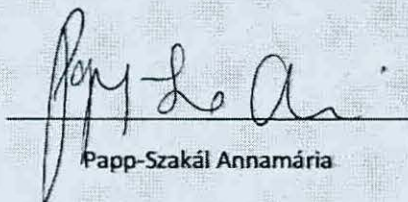 Papp-Szakál Annamária